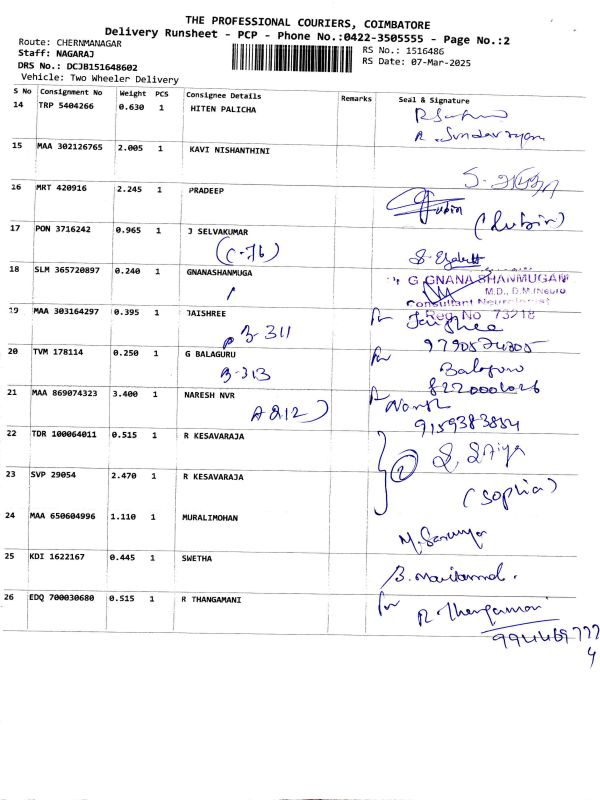 THE PROFESSIONAL COURIERS, COIMBATORE
Delivery Runsheet - PCP - Phone No.:0422-3505555 - Page No.:2
Route: CHERNMANAGAR
Staff: NAGARAJ
DRS No.: DCJB151648602
Vehicle: Two Wheeler Delivery
RS No.: 1516486
RS Date: 07-Mar-2025
S No Consignment No Weight PCS Consignee Details Remarks Seal & Signature
14 TRP 5404266 0.630 1 HITEN PALICHA
15 MAA 302126765 2.005 1 KAVI NISHANTHINI
16 MRT 420916 2.245 1 PRADEEP
17 PON 3716242 0.965 1 J SELVAKUMAR
(C-76)
18 SLM 365720897 0.240 1 GNANASHANMUGA
G GNANA SHANMUGAN
M.D., D.M (Neuro
Consultant Neurologist
Reg. No 73218
19 MAA 303164297 0.395 1 JAISHREE
B-311
9790574305
20 TVM 178114 0.250 1 G BALAGURU
B-313
Balaguru
8220001026
21 MAA 869074323 3.400 1 NARESH NVR
A 212
9159383854
22 TDR 100064011 0.515 1 R KESAVARAJA
23 SVP 29054 2.470 1 R KESAVARAJA
2
(Sophia)
24 MAA 650604996 1.110 1 MURALIMOHAN
25 KDI 1622167 0.445 1 SWETHA
26 EDQ 700030680 0.515 1 R THANGAMANI
R. Thangamani
994469777
4